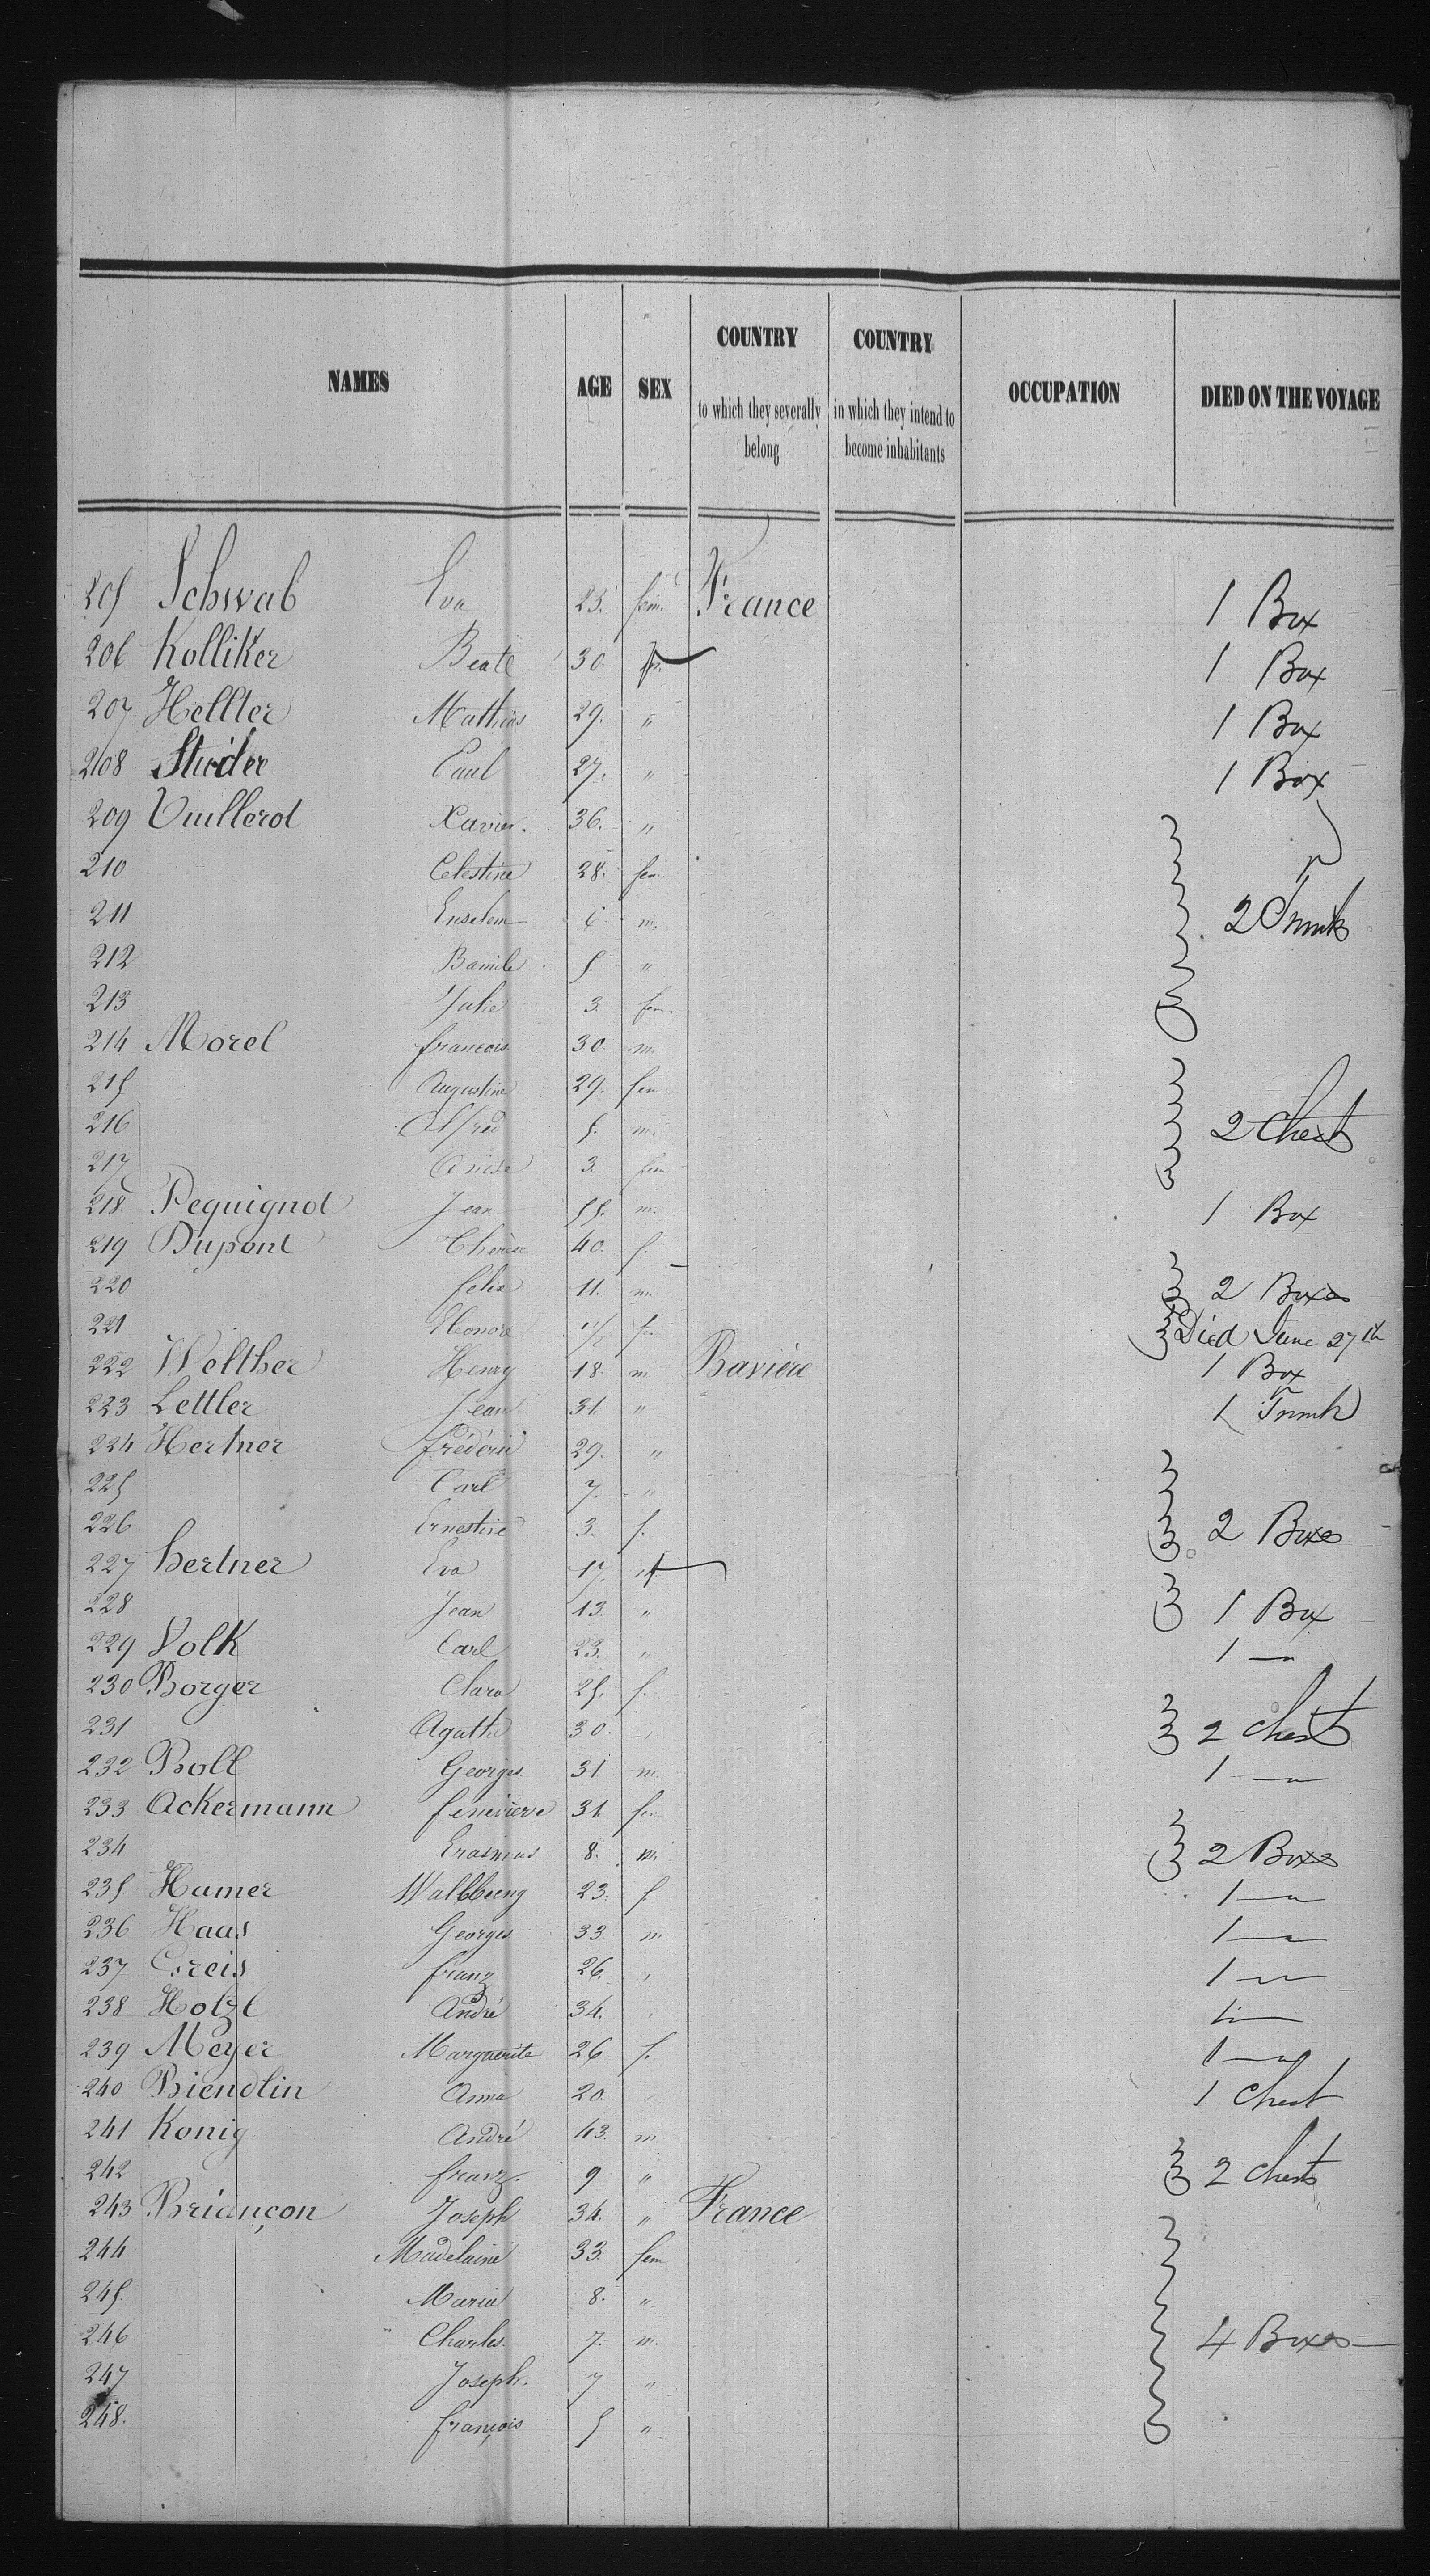 NAMES AGE SEX COUNTRY to which they severally belong COUNTRY in which they intend to become inhabitants OCCUPATION DIED ON THE VOYAGE
205 Schwab Eva 23. fem. France 1 Box
206 Kolliker Beate 30. m. 1 Box
207 Hellter Mathias 29. " 1 Box
208 Studer Paul 27. " 1 Box
209 Vuillerot Xavier. 36. "
210 Celestine 28. fem
211 Enselem 6 m. 2 Trunks
212 Bamile 5. "
213 Julie 3. fem.
214 Morel francois. 30. m.
215 Augustine 29. fem
216 Alfred 5. m. 2 Chests
217 Anise 3. fem
218 Pequignot Jean 55. m. 1 Box
219 Dupont Therese 40. f.
220 felix 11. m. 2 Boxes
221 Eleonore 11/2 fem Died June 27th
222 Welther Henry 18. m Bavière 1 Box
223 Lettler Jean 31. " 1 Trunk
224 Hertner frédéric 29. "
225 Carl 7. "
226 Ernestine 3. f. 2 Boxes
227 hertner Eva 17.
228 Jean 13. " 1 Box
229 Volk Carl 23. " 1 —
230 Borger Clara 25. f.
231 Agathe 30. 2 chest
232 Boll Georges. 31 m. 1 —
233 Ackermann fenevieve 31. fem
234 Erasmus 8. m. 2 Boxes
235 Hamer Wallburg 23. f 1 —
236 Haas Georges 33. m 1 —
237 Greis franz 26. " 1 —
238 Hotzl André 34. 1 —
239 Meyer Marguerite 26 f. 1 —
240 Biendlin Anna 20. 1 Chest
241 Konig André 43. m
242 franz. 9 " 2 chests
243 Briançon Joseph 34. " France
244 Madelaine 33. fem
245. Maria 8. "
246 Charles. 7. m. 4 Boxes —
247 Joseph. 7 "
248. françois 5 "